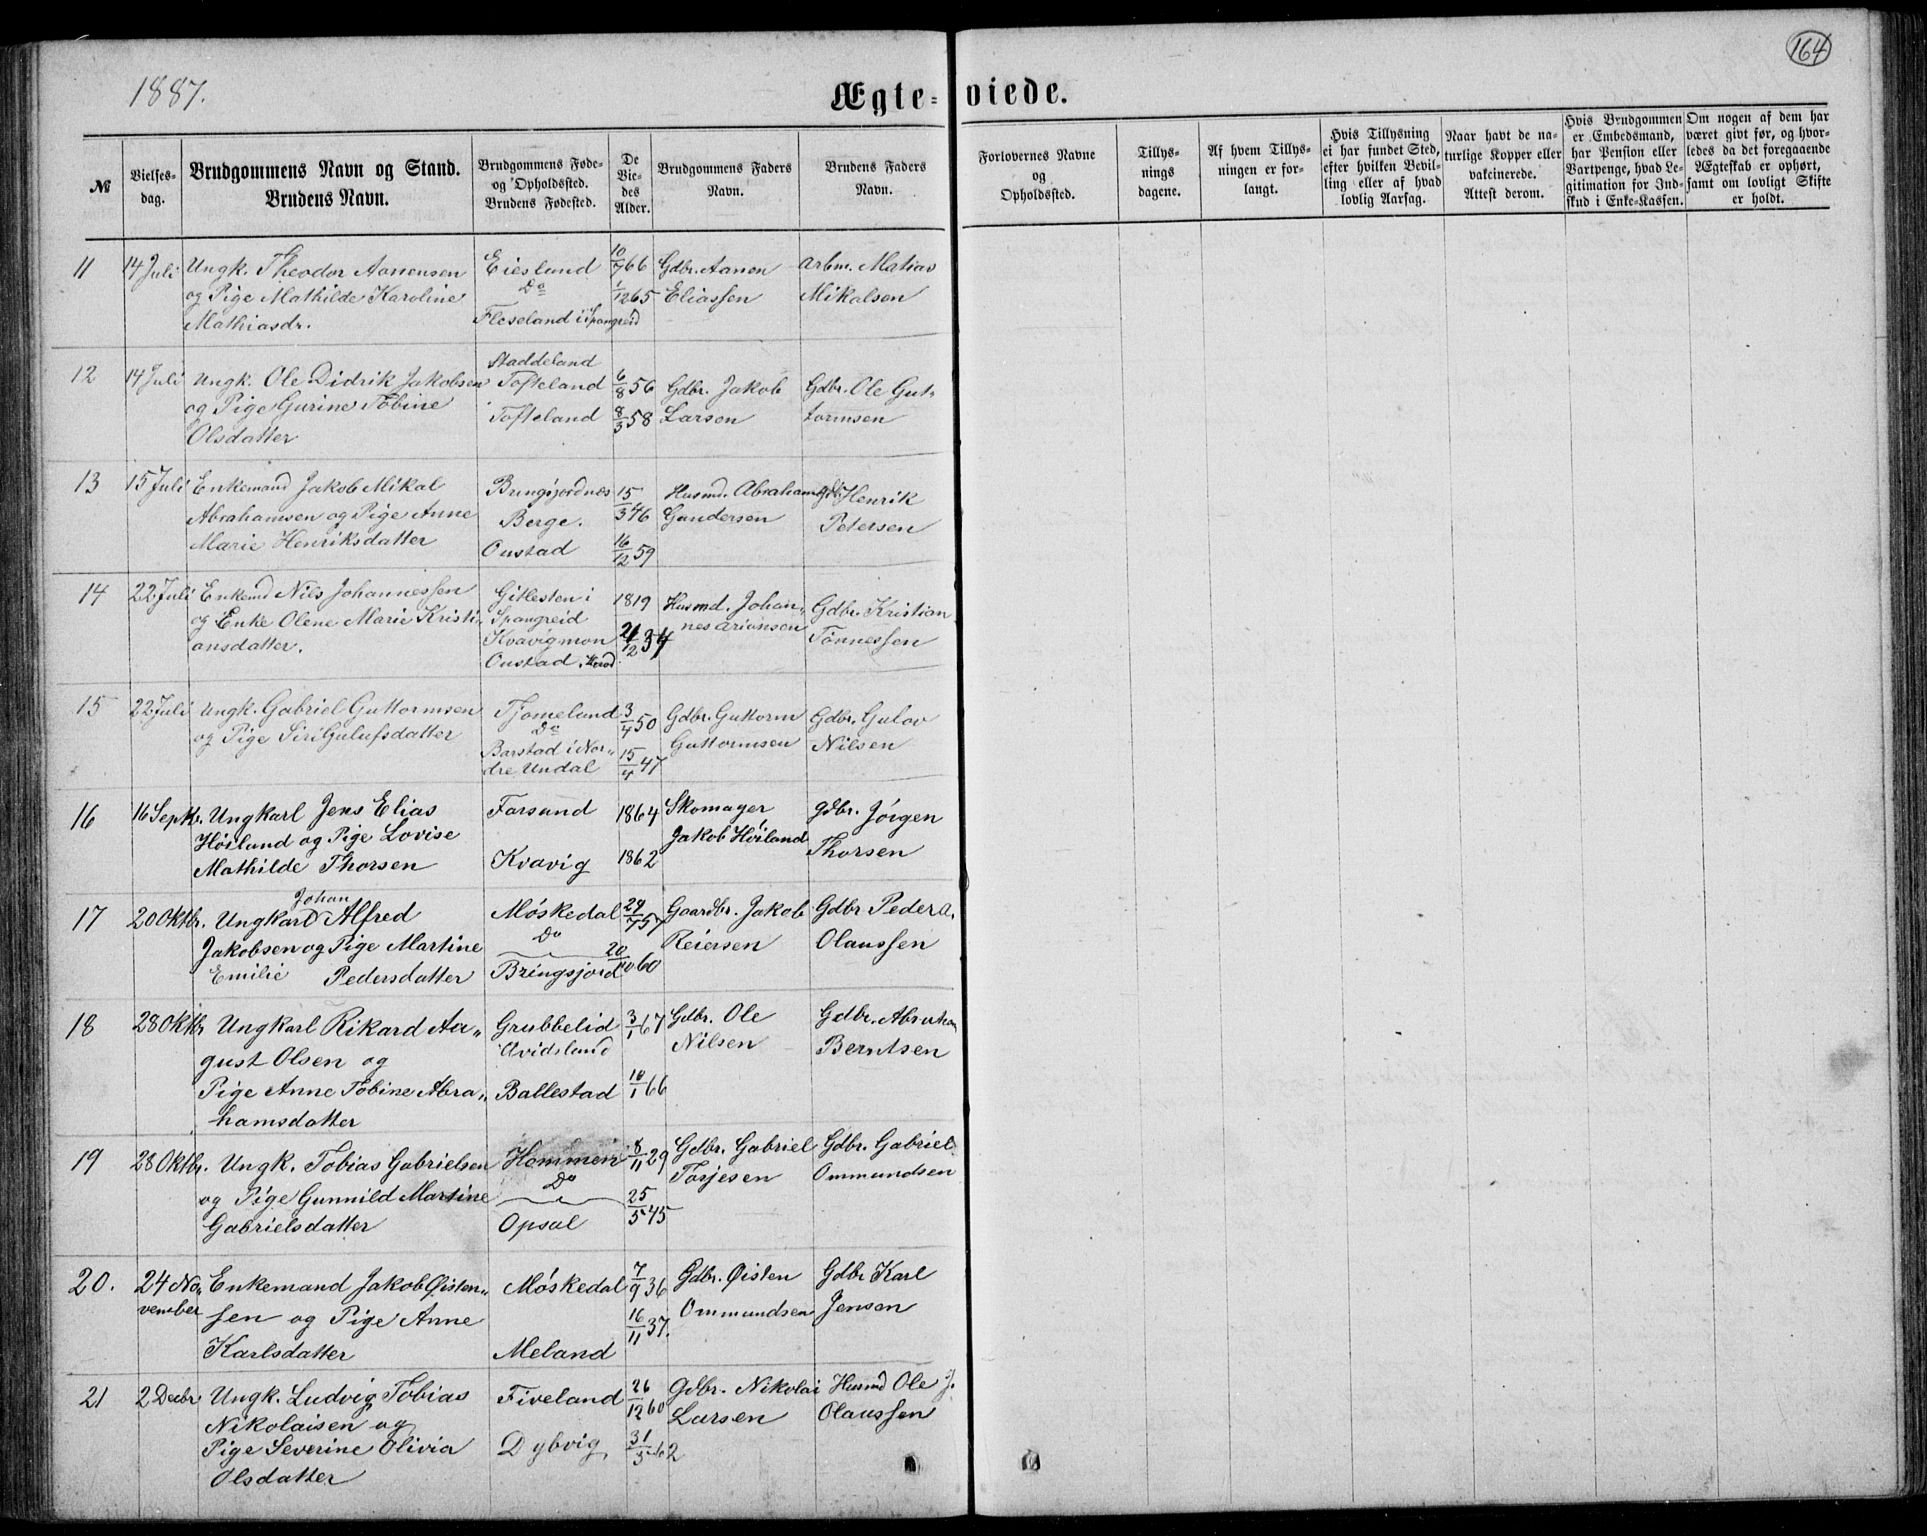 164
1887.
Ægte-viede.
№
Vielses-dag.
Brudgommens Navn og Stand.
Brudens Navn.
Brudgommens Føde-
og Opholdssted.
Brudens Fødested.
De
Vie-
des
Alder.
Brudgommens Faders
Navn.
Brudens Faders
Navn.
Forlovernes Navne
og
Opholdssted.
Tillys-
nings
dagene.
Af hvem Tillys-
ningen er for-
langt.
Hvis Tillysning
ei har fundet Sted,
efter hvilken Bevil-
ling eller af hvad
lovlig Aarsag.
Naar havt de na-
turlige Kopper eller
vakcinerede.
Attest derom.
Hvis Brudgommen
er Embedsmand,
har Pension eller
Vartpenge, hvad Le-
gitimation for Ind-
skud i Enke-Kassen.
Om nogen af dem har
været givt før, og hvor-
ledes da det foregaaende
Ægteskab er ophørt,
samt om lovligt Skifte
er holdt.
11 14 Juli Ungk. Theodor Aanensen Eiesland 10/7 66 Gdbr. Aanen Arbm. Matias
og Pige Mathilde Karoline Do 1/12 65 Eliassen Mikalsen
Mathiasdr. Fleseland i Spangreid
12 14 Juli Ungk. Ole Didrik Jakobsen Staddeland Tofteland 6/8 56 Gdbr. Jakob Gdbr. Ole Gut-
og Pige Gurine Tobine Tofteland 8/3 58 Larsen tormsen
Olsdatter
13 15 Juli Enkemand Jakob Mikal Bringsjordnes 15/3 46 Husmd. Abraham Gdbr. Henrik
Abrahamsen og Pige Anne Berge. Gundersen Petersen
Marie Henriksdatter Oustad 16/12 59
14 22 Juli Enkemd Nils Johannessen Gitlesten i 1819 Husmd. Johan- Gdbr. Kristian
og Enke Olene Marie Kristi- Spangreid nes Arionsen Tønnessen
ansdatter. Kvavigmon 21/2 34
Oustad. Herad
15 22 Juli Ungk. Gabriel Guttormsen Tjomeland 3/4 50 Gdbr. Guttorm Gdbr. Gulov
og Pige Siri Gulufsdatter Do Guttormsen Nilsen
Barstad i Nor- 15/4 47
dre Undal
16 16 Septbr. Ungkarl Jens Elias Farsund 1864 Skomager Gdbr. Jørgen
Høiland og Pige Lovise Jakob Høiland Thorsen
Mathilde Thorsen Kvavig 1862
17 20 Oktbr. Ungkarl Johan Alfred Møskedal 24/7 57 Gaardbr. Jakob Gdbr Peder A.
Jakobsen og Pige Martine Do Reiersen Olaussen
Emilie Pedersdatter Bringsjord 20/10 60
18 28 Oktbr Ungkarl Rikard Au- Grubbelid 3/1 67 Gdbr. Ole Gdbr. Abraham
gust Olsen og Qvidsland Nilsen Berntsen
Pige Anne Tobine Abra- Ballestad 10/1 66
hamsdatter
19 28 Oktbr. Ungk. Tobias Gabrielsen Hommen 8/11 29 Gdbr. Gabriel Gdbr. Gabriel
og Pige Gunnild Martine Do Torjesen Ommundsen
Gabrielsdatter Opsal 25/5 45
20. 24 No-vember Enkemand Jakob Øisten- Møskedal 7/9 36 Gdbr. Øisten Gdbr Karl
sen og Pige Anne Ommundsen Jensen
Karlsdatter Meland 16/11 37.
21 2 Decbr Ungk. Ludvig Tobias Fiveland 26/12 60 Gdbr. Nikolai Husmd Ole J.
Nikolaisen og Larsen Olaussen
Pige Severine Olivia Dybvig 31/5 62
Olsdatter